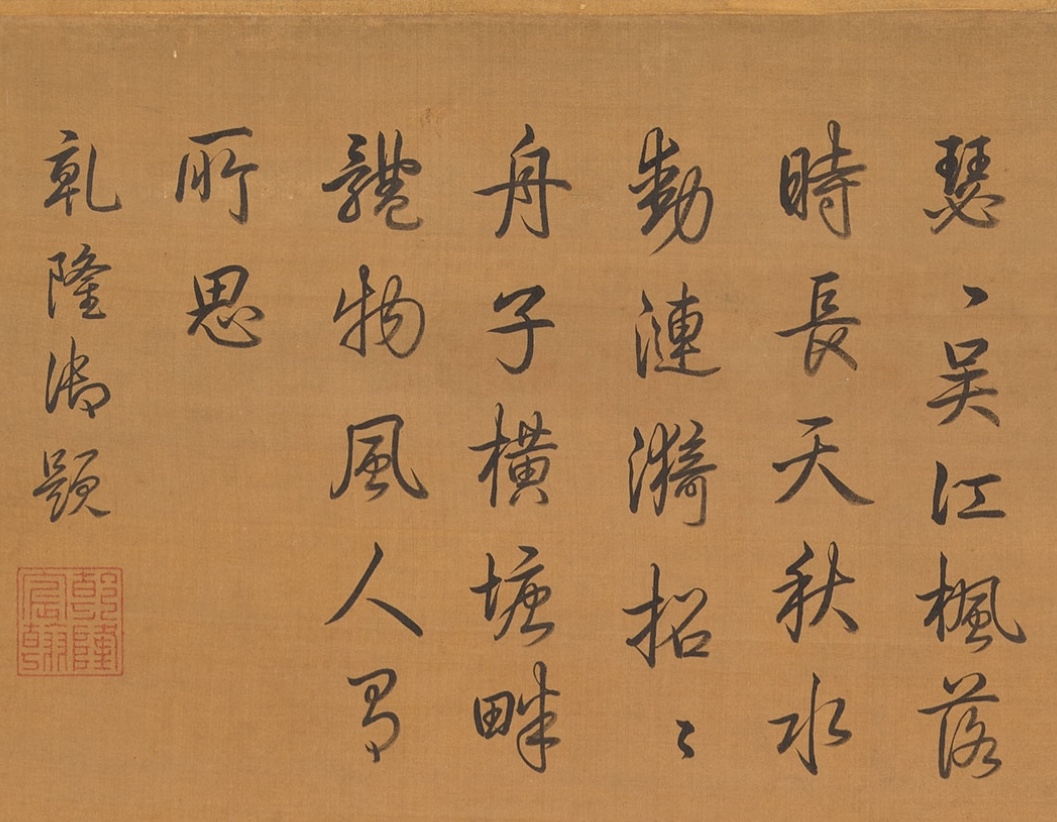 瑟〻吳江楓落
時長天秋水
動漣漪招〻
舟子橫塘畔
體物風人有
所思
乾隆御題
乾隆宸翰